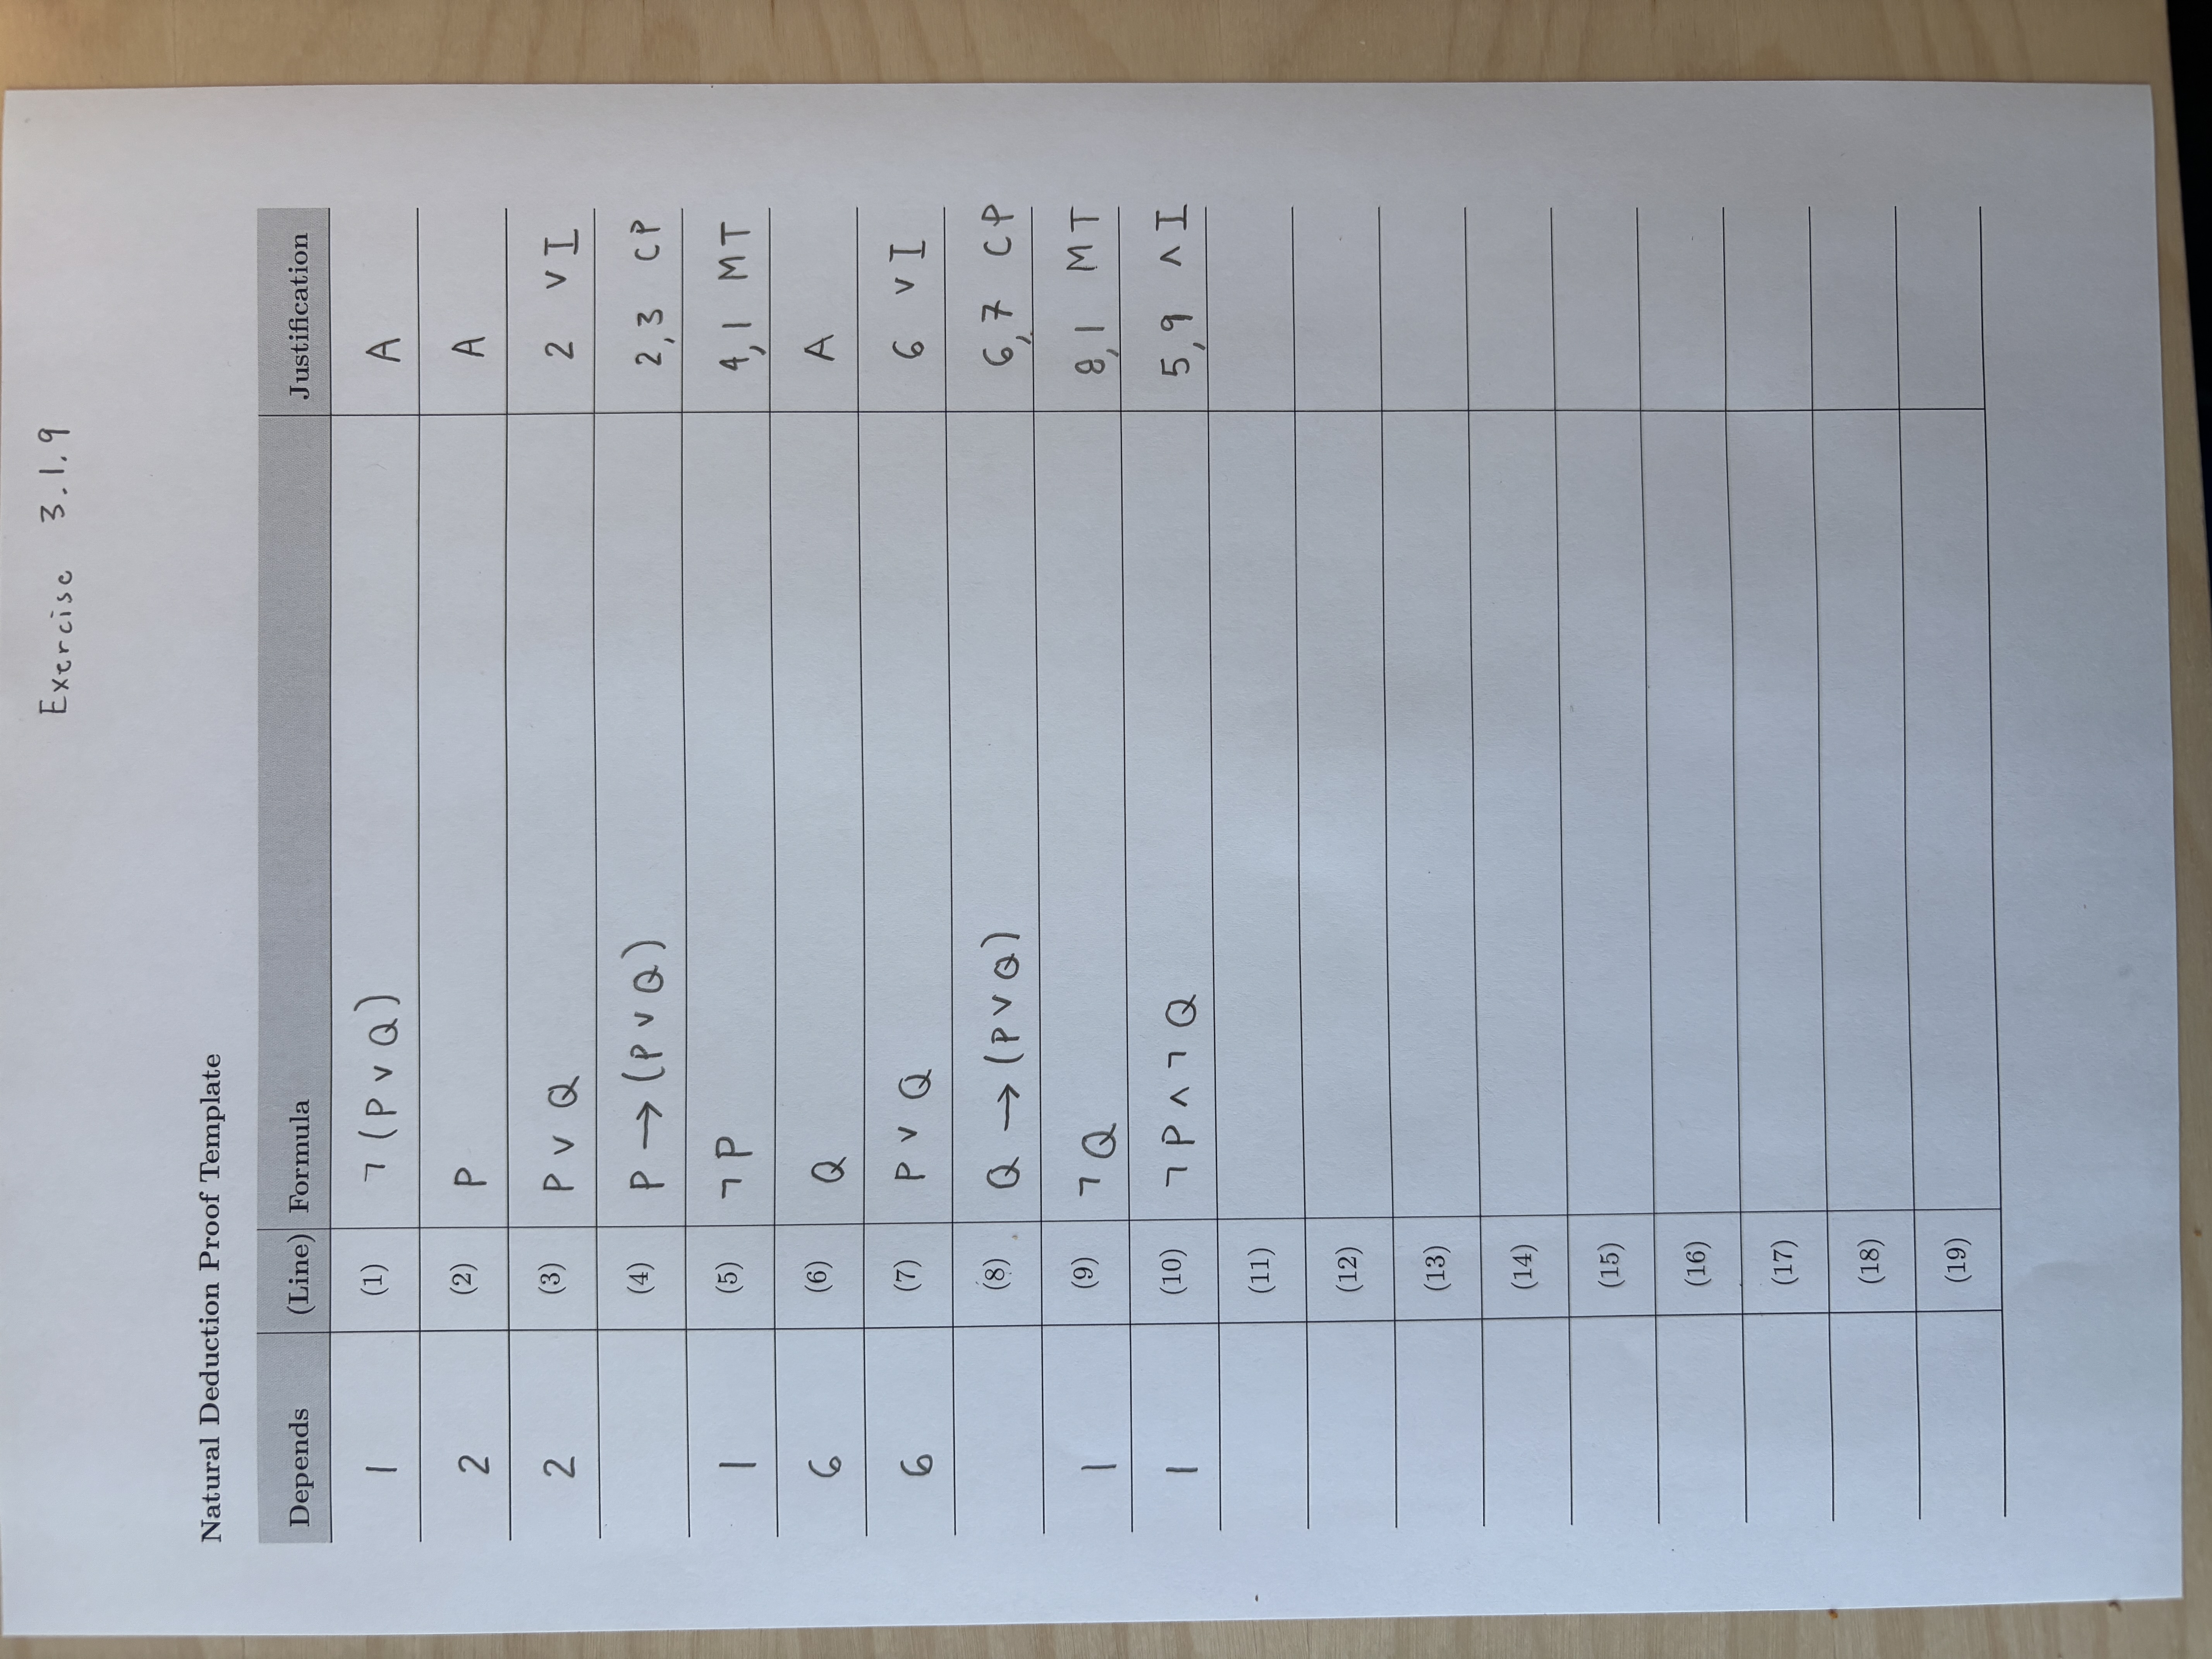 Exercise 3.1.9
Natural Deduction Proof Template
Depends (Line) Formula Justification
1 (1) ¬(P ∨ Q) A
2 (2) P A
2 (3) P ∨ Q 2 ∨I
(4) P → (P ∨ Q) 2,3 CP
1 (5) ¬P 4,1 MT
6 (6) Q A
6 (7) P ∨ Q 6 ∨I
(8) Q → (P ∨ Q) 6,7 CP
1 (9) ¬Q 8,1 MT
1 (10) ¬P ∧ ¬Q 5,9 ∧I
(11)
(12)
(13)
(14)
(15)
(16)
(17)
(18)
(19)